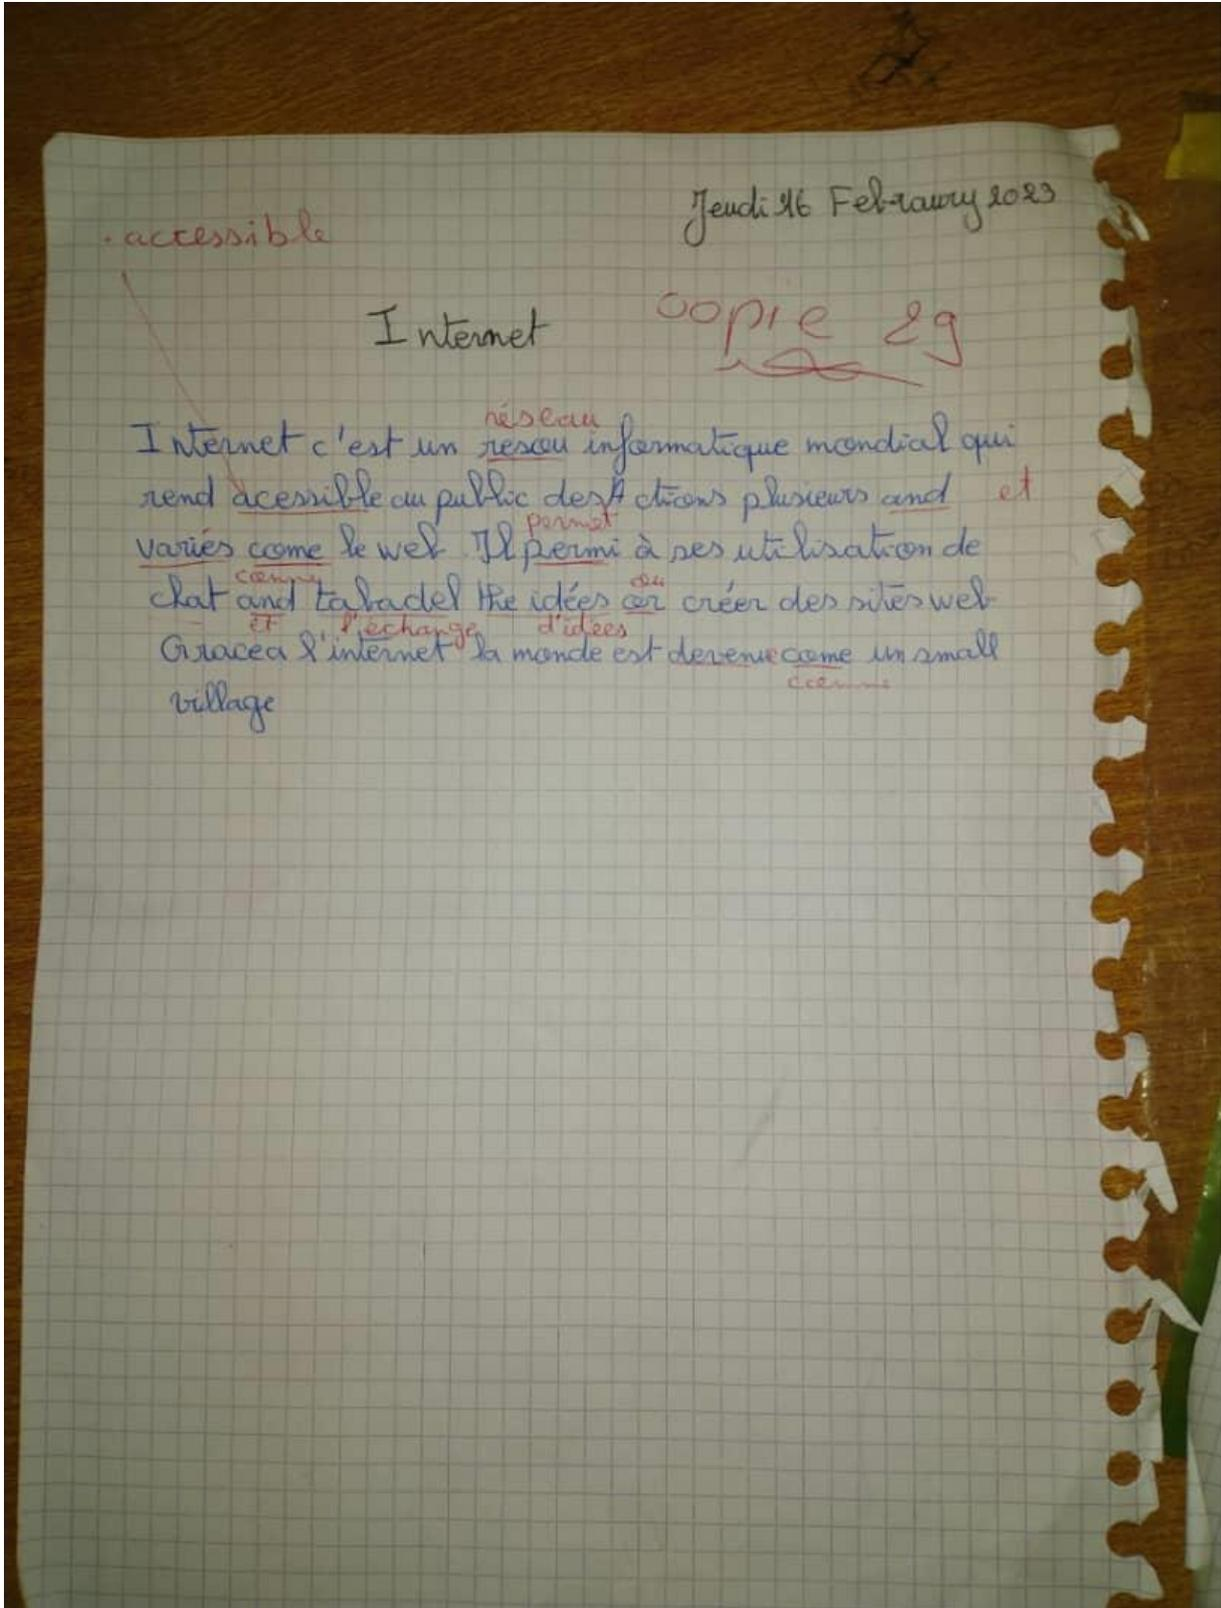 Jeudi 16 Febraury 2023
. accessible
Internet
copie 29
réseau
Internet c'est un resau informatique mondial qui
rend acessible au public des Actions plusieurs and et
permet
variés come le web Il permi à ses utilisation de
comme ou
chat and tabadel the idées or créer des sites web
et l'échange d'idées
Gracea l'internet la monde est devenue come un small
comme
village